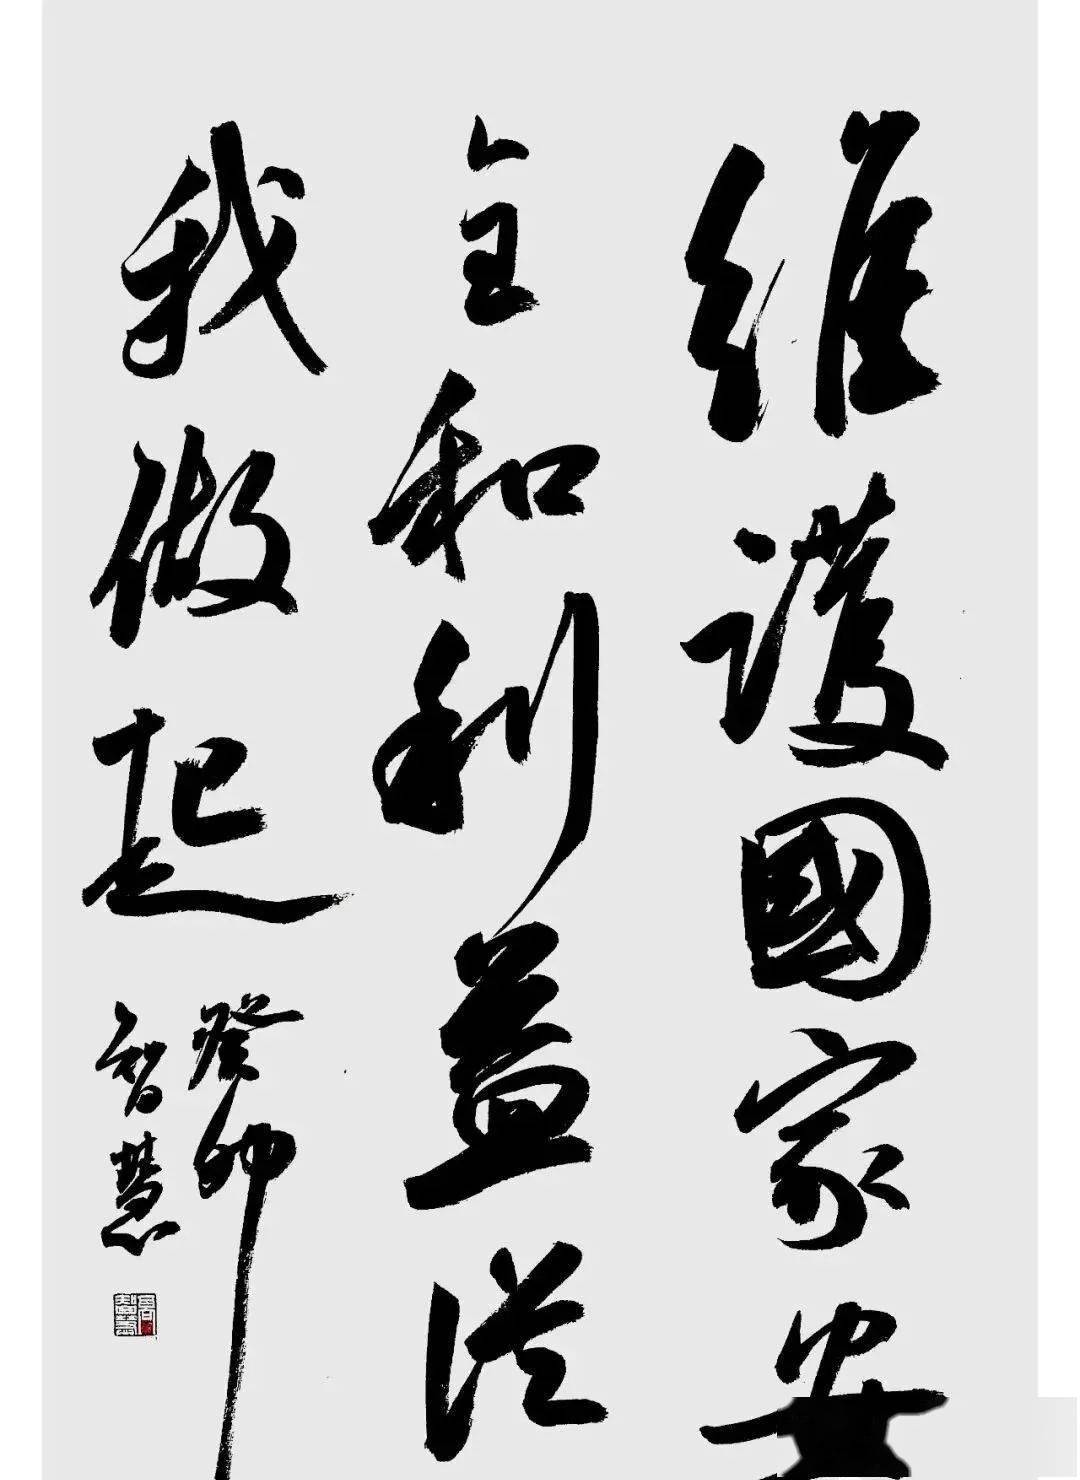 維護國家安
全和利益從
我做起
癸卯
智慧